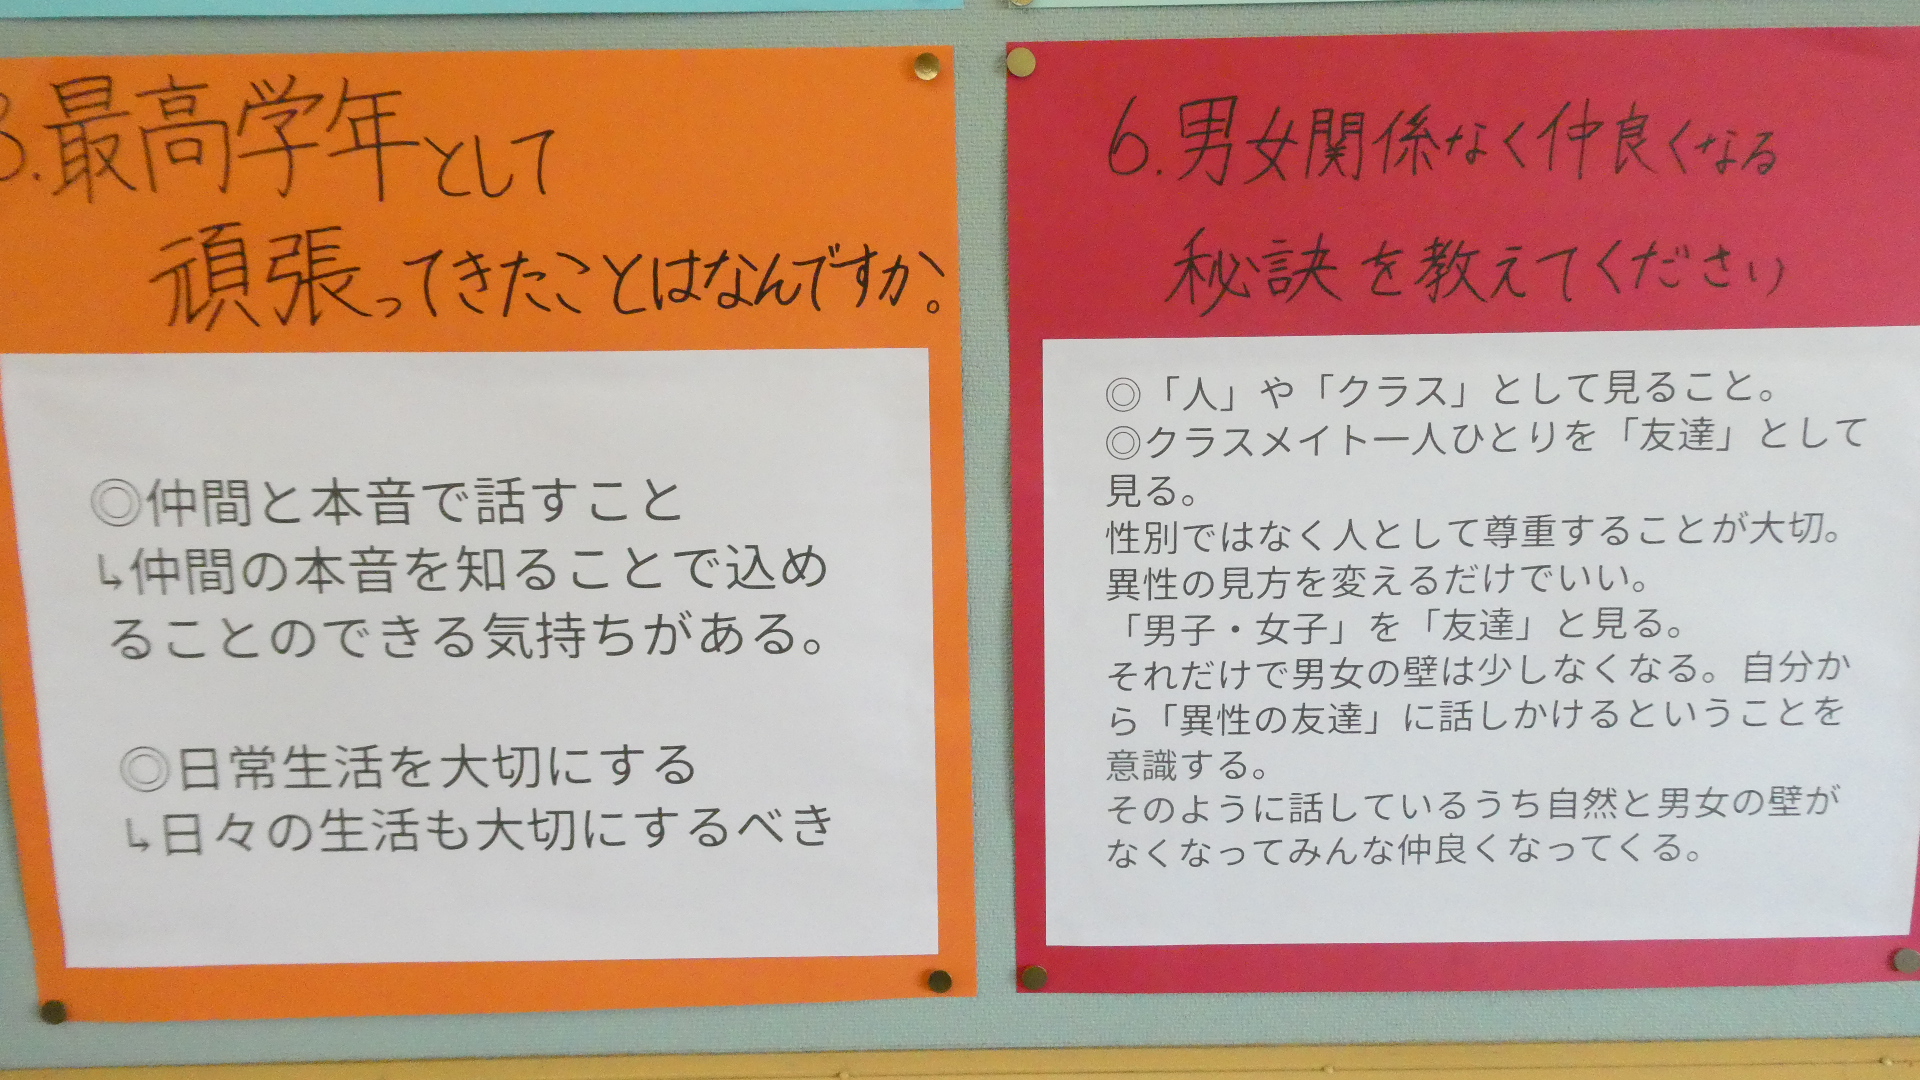 3.最高学年として
頑張ってきたことはなんですか。
◎仲間と本音で話すこと
↳仲間の本音を知ることで込め
ることのできる気持ちがある。
◎日常生活を大切にする
↳日々の生活も大切にするべき
6.男女関係なく仲良くなる
秘訣を教えてください
◎「人」や「クラス」として見ること。
◎クラスメイト一人ひとりを「友達」として
見る。
性別ではなく人として尊重することが大切。
異性の見方を変えるだけでいい。
「男子・女子」を「友達」と見る。
それだけで男女の壁は少しなくなる。自分か
ら「異性の友達」に話しかけるということを
意識する。
そのように話しているうち自然と男女の壁が
なくなってみんな仲良くなってくる。